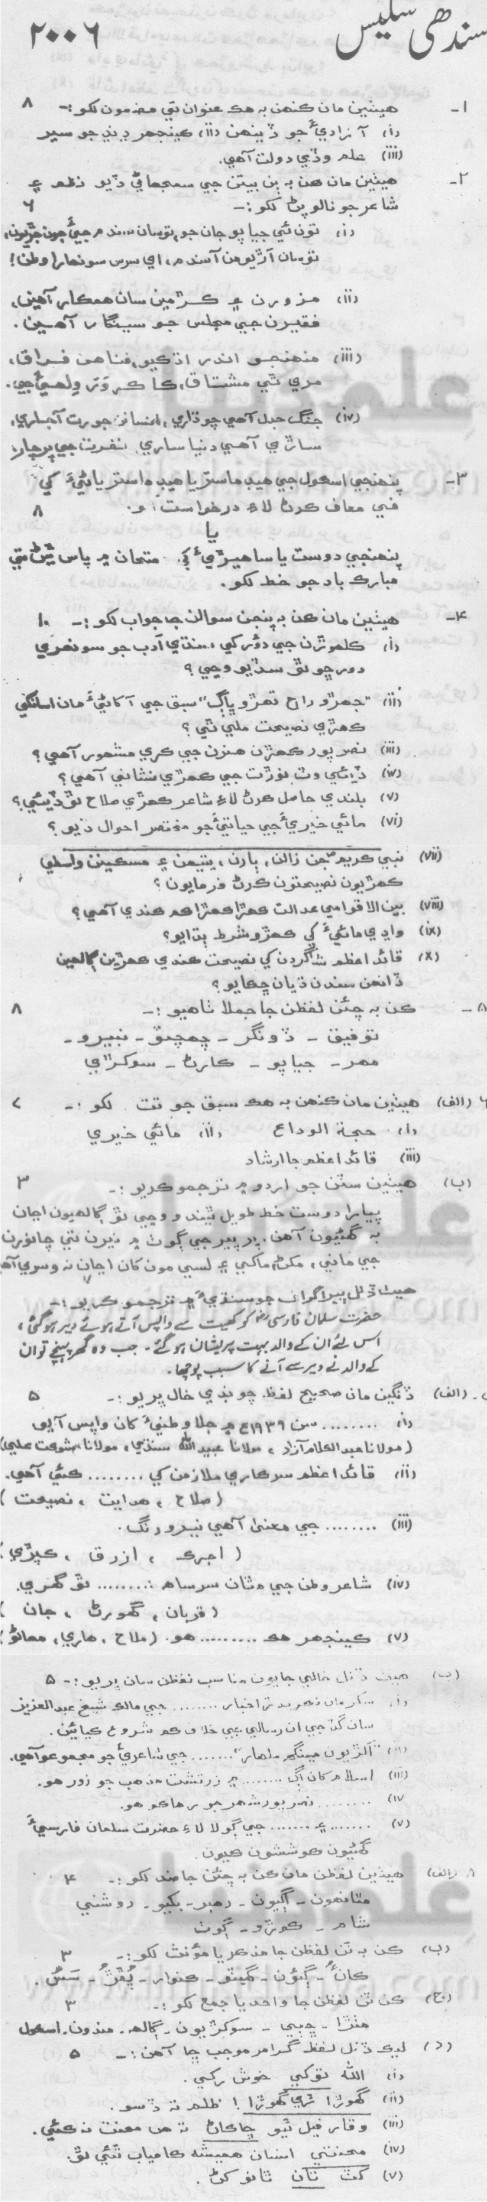 سنڌي سليس ٢٠٠٦
١- هيٺين مان ڪنهن به هڪ عنوان تي مضمون لکو:- ٨
(i) آزاديءَ جو ڏينهن (ii) ڪينجهر ڍنڍ جو سير
(iii) علم وڏي دولت آهي.
٢- هيٺين مان ڪن به ٻن بيتن جي سمجهاڻي ڏيو نظم ۽
شاعر جو نالو پڻ لکو:- ٦
(ii) مزورن ۽ ڪڙمين سان همڪار آهين،
فقيرن جي مجلس جو سينگار آهين.
(iii) منهنجو اندر اڌ ڪيو، فنا هن فراق،
(iv) جنگ جدل آهي چوڌاري، انسانو جو رت آ جاري،
ساڙي آهي دنيا ساري، نفرت جي پرچار
٣- پنهنجي اسڪول جي هيڊ ماستر يا هيڊ ماسترياڻيءَ کي
في معاف ڪرڻ لاءِ درخواست لکو. ٨
يا
پنهنجي دوست يا ساهيڙيءَ کي امتحان ۾ پاس ٿيڻ تي
مبارڪباد جو خط لکو.
٤- هيٺين مان ڪن به پنجن سوالن جا جواب لکو:- ١٠
(i) ڪلهوڙن جي دؤر کي، سنڌي ادب جو سونهري
دور ڇو ٿو سڏيو وڃي؟
(ii) "جهڙو راڄ تهڙو ڀاڳ" سبق جي آکاڻيءَ مان اسانکي
ڪهڙي نصيحت ملي ٿي؟
(iii) نصرپور ڪهڙن هنرن جي ڪري مشهور آهي؟
(iv) ڏيئي وٽ ٻورٽ جي ڪهڙي نشاني آهي؟
(v) بلندي حاصل ڪرڻ لاءِ شاعر ڪهڙي صلاح ٿو ڏئي؟
(vi) مائي خيريءَ جي حياتيءَ جو مختصر احوال ڏيو؟
(vii) نبي ڪريم ﷺ جن زالن، ٻارن، يتيمن ۽ مسڪينن واسطي
ڪهڙيون نصيحتون ڪرڻ فرمايون؟
(viii) بين الاقوامي عدالت ڪهڙا ڪهڙا ڪم ڪندي آهي؟
(ix) واڍي مائيءَ کي ڪهڙو شرط ٻڌايو؟
(x) قائداعظم شاگردن کي نصيحت ڪندي ڪهڙين ڳالهين
ڏانهن سندن ڌيان ڇڪايو؟
٥- ڪن به چئن لفظن جا جملا ٺاهيو:- ٨
توفيق - ڏونگر - چمچٽو - نبيرو -
مهر - جياپو - ڪارڻ - سوکڙي
٦ (الف) هيٺين مان ڪنهن به هڪ سبق جو تت لکو:- ٧
(i) حجة الوداع (ii) مائي خيري
(iii) قائداعظم جا ارشاد
(ب) هيٺين سٽن جو اردو ۾ ترجمو ڪريو:- ٣
پيارا دوست خط طويل ٿيندو وڃي ٿو ڳالهيون اڃان
به گهڻيون آهن. پر پير جي ڳوٺ ۾ نيرن تي چانورن
جي ماني، مکڻ، ماکي ۽ لسي مون کان اڃان نه وسري آهي
هيٺ ڏنل پيراگراف جو سنڌيءَ ۾ ترجمو ڪريو:-
حضرت سلمان فارسیؓ کو کھیت سے واپس آتے ہوئے دیر ہو گئی،
اس لئے ان کے والد بہت پریشان ہو گئے۔ جب وہ گھر پہنچے تو ان
کے والد نے دیر سے آنے کا سبب پوچھا۔
(الف) ڏنگين مان صحيح لفظ چونڊي خال ڀريو:- ٥
(i) ........ سن ١٩٣٩ع ۾ جلاوطنيءَ کان واپس آيو.
(مولانا عبدالڪلام آزاد، مولانا عبيدالله سنڌي، مولانا شوڪت علي)
(ii) قائداعظم سرڪاري ملازمن کي ........ ڪئي آهي.
(صلاح، هدايت، نصيحت)
(iii) ........ جي معنيٰ آهي نيرو رنگ.
(اجرڪ، ازرق، ڪپڙي)
(iv) شاعر وطن جي مٿان سر ساهه ........ ٿو گهري.
(قربان، گهورڻ، جان)
(v) ڪينجهر هڪ ........ هو. (ملاح، هاري، مهاڻو)
(ب) هيٺ ڏنل خالي جايون مناسب لفظن سان ڀريو:- ٥
(i) سکر مان نڪرندڙ اخبار ........ جي مالڪ شيخ عبدالعزيز
سان گڏجي ان رسالي جي خلاف ڪم شروع ڪيائين.
(ii) "لڙيون مينگهه ملهار" ........ جي شاعريءَ جو مجموعو آهي.
(iii) اسلام کان اڳ ........ ۾ زرتشت مذهب جو زور هو.
(iv) ........ نصرپور شهر جو رهاڪو هو.
(v) ........ ۽ ........ جي ڳولا لاءِ حضرت سلمان فارسيءَ
گهڻيون ڪوششون ڪيون.
٨ (الف) هيٺين لفظن مان ڪن به چئن جا ضد لکو:- ٤
منافقون - اڳيون - رهبر - بکيو - روشني
شام - ڪوڙو - ڳوٺ
(ب) ڪن به ٽن لفظن جا مذڪر يا مؤنث لکو:- ٣
(ج) ڪن ٽن لفظن جا واحد يا جمع لکو:- ٣
هنڌا - ڇٻي - سوکڙيون - ڳالهه - مندون - اسڪول
(د) ليڪ ڏنل لفظ گرامر موجب ڇا آهن:- ٥
(i) الله توکي خوش رکي.
(ii) گهوڙا ڙي گهوڙا! ظلم ته ڏسو.
(iii) وقار فيل ٿيو ڇاڪاڻ ته هن محنت نه ڪئي.
(iv) محنتي انسان هميشه ڪامياب ٿئي ٿو.
(v) کٽ تان ٿانو کڻ.